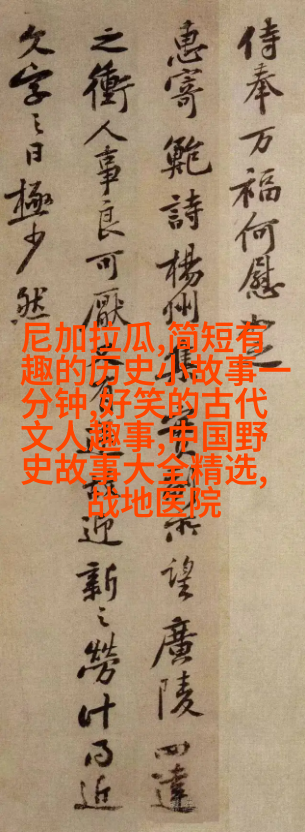 侍奉万福何慰
惠寄鲍詩楊州集
望廣陵四達
之衝人事良可厭
有
迎
新之勞什
近
久字之日極少然
尼加拉瓜,简短有
趣的历史小故事一
分钟,好笑的古代
文人趣事,中国野
史故事大全精选,
战地医院